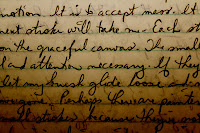 motion. It is to accept mess. It
next stroke will take me. Each st
on the graceful canvas. The small
l and attention necessary. If they
let my brush glide loose and
everyone. Perhaps there are painters
small strokes, because they